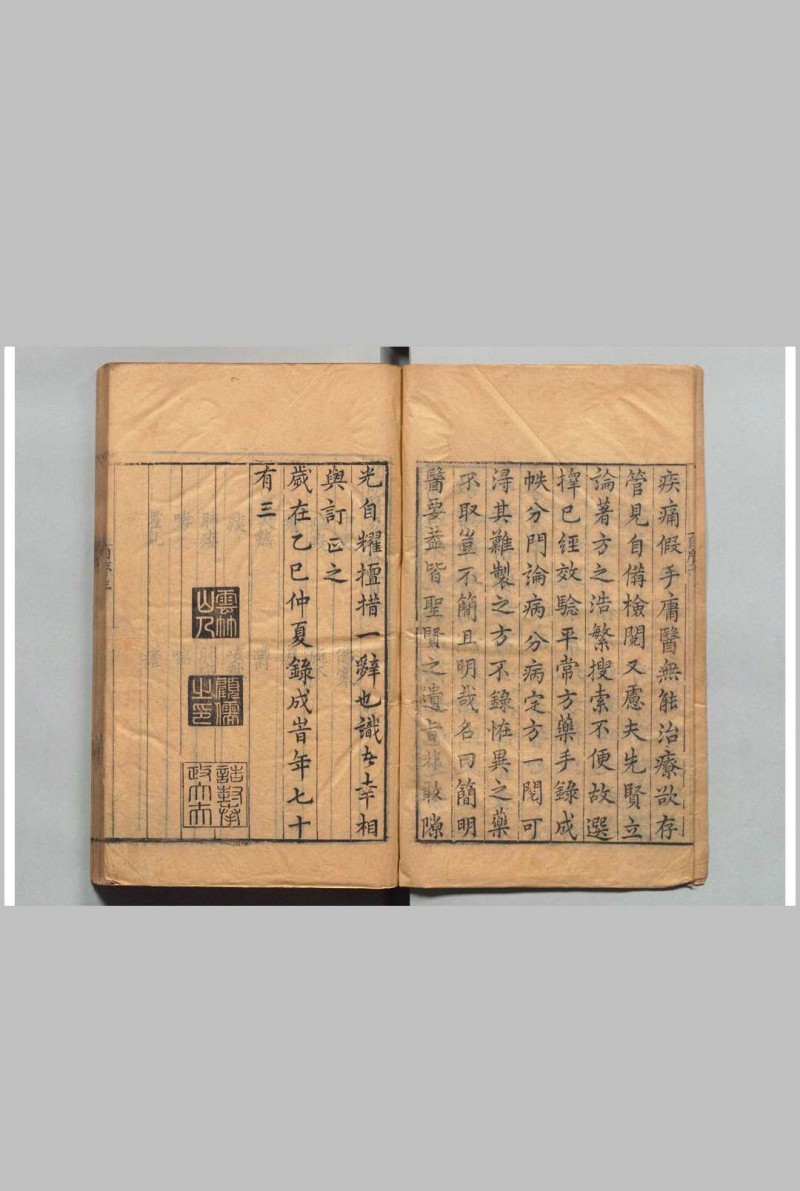 疾痛假手庸醫無能治療欲存
管見自備檢閱又慮夫先賢立
論著方之浩繁搜索不便故選
擇已經效驗平常方藥手錄成
帙分門論病分病定方一閱可
淂其難製之方不錄恠異之藥
不取豈不簡且明哉名曰簡明
醫要葢皆聖賢之遺旨非敢隙
光自耀擅措一辭也識者幸相
與訂正之
歲在乙巳仲夏錄成旹年七十
有三
雲林山人
顧儒之印
誥封奉政大夫